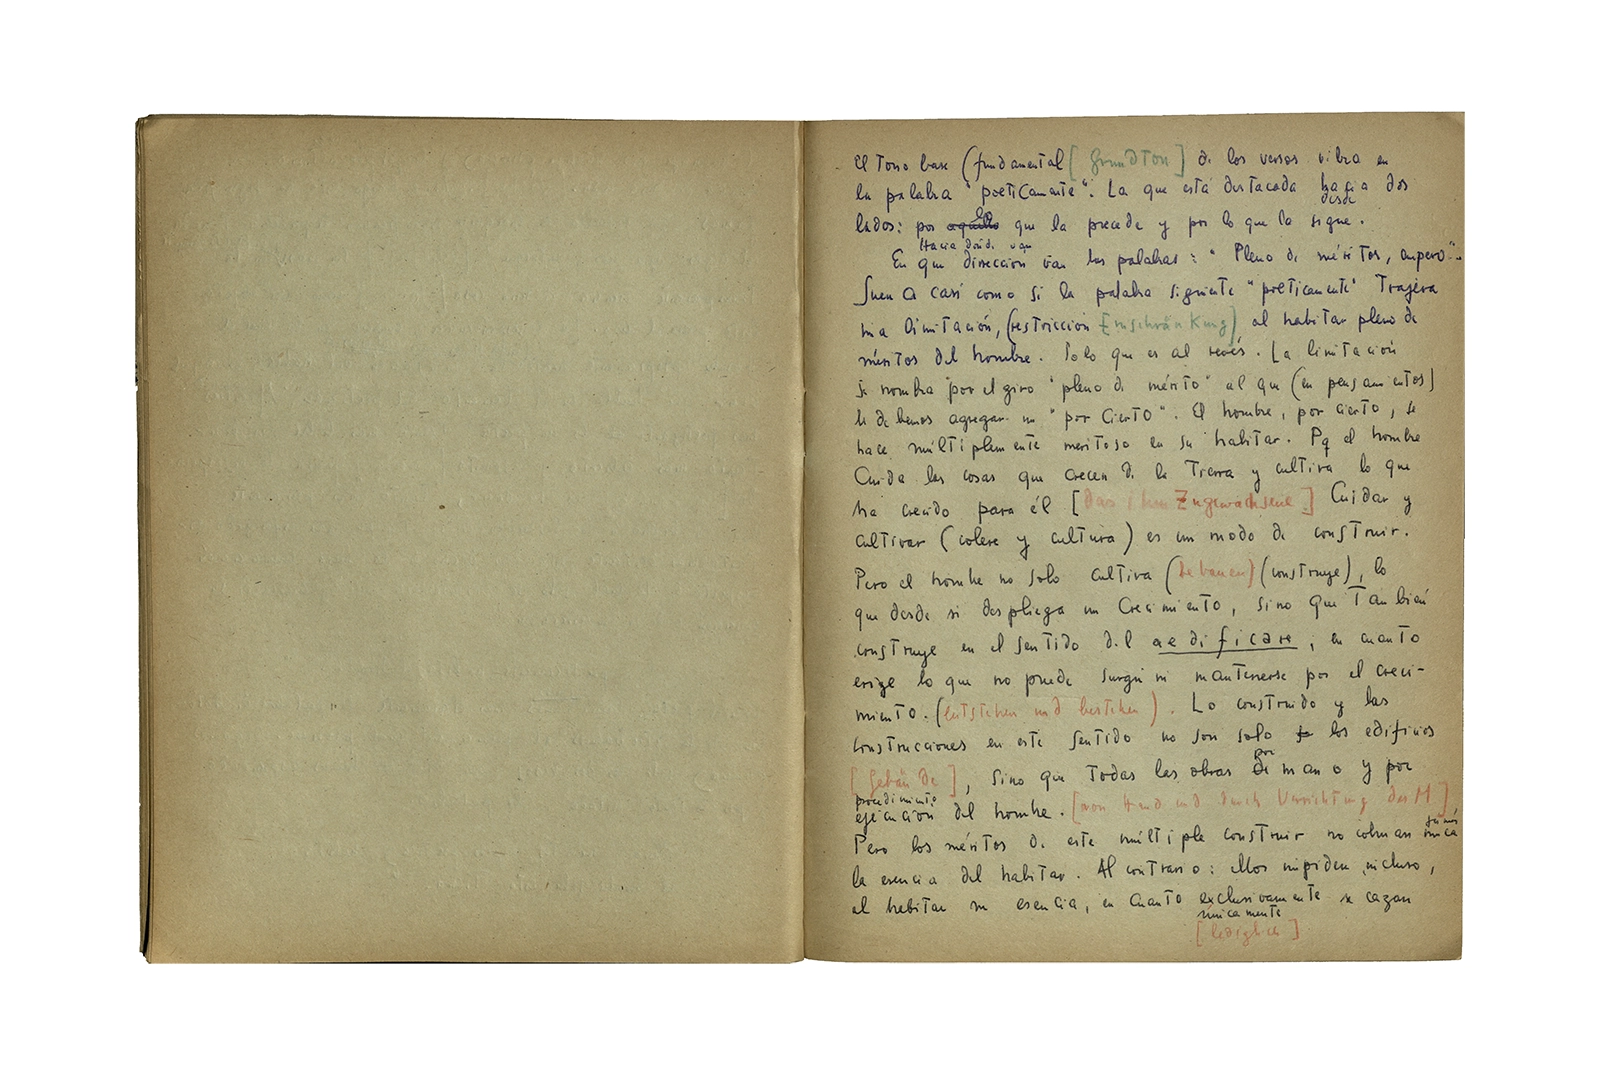 El Tono base (fundamental [Grundton] de los versos vibra en
la palabra "poéticamente". La que está destacada hacia dos
desde
lados: por aquello lo que la precede y por lo que la sigue.
Hacia donde van
En que dirección van las palabras: "Pleno de méritos, empero"..
Suena casi como si la palabra siguiente "poéticamente" Trajera
una limitación, (restricción Einschränkung) al habitar pleno de
méritos del hombre. Solo que es al revés. La limitación
se nombra por el giro "pleno de mérito" al que (en pensamientos)
le debemos agregar un "por cierto". El hombre, por cierto, se
hace múltiplemente meritoso en su habitar. Pq el hombre
Cuida las cosas que crecen de la Tierra y cultiva lo que
ha crecido para él [das ihm Zugewachsene] Cuidar y
cultivar (colere y cultura) es un modo de construir.
Pero el hombre no solo cultiva (bebauen) (construye), lo
que desde si despliega un Crecimiento, sino que También
construye en el sentido del aedificare, en cuanto
erige lo que no puede surgir ni mantenerse por el creci-
miento. (entstehen und bestehen). Lo construido y las
construcciones en este sentido no son solo los edificios
[Gebäude], sino que Todas las obras de por mano y por
procedimiento
ejecución del hombre. [von Hand und durch Verrichtung des M],
jamás
Pero los méritos de este múltiple construir no colman nunca
la esencia del habitar. Al contrario: ellos impiden incluso,
al habitar su esencia, en cuanto exclusivamente se cazan
únicamente
[lediglich]